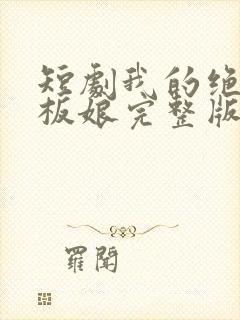 短劇我的绝
板娘完整版
羅聞